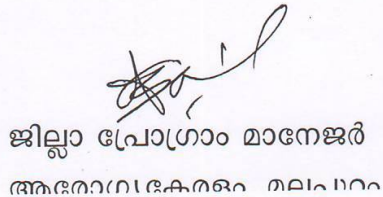 ജില്ലാ പ്രോഗ്രാം മാനേജർ
ആരോഗ്യകേരളം മലപ്പുറം